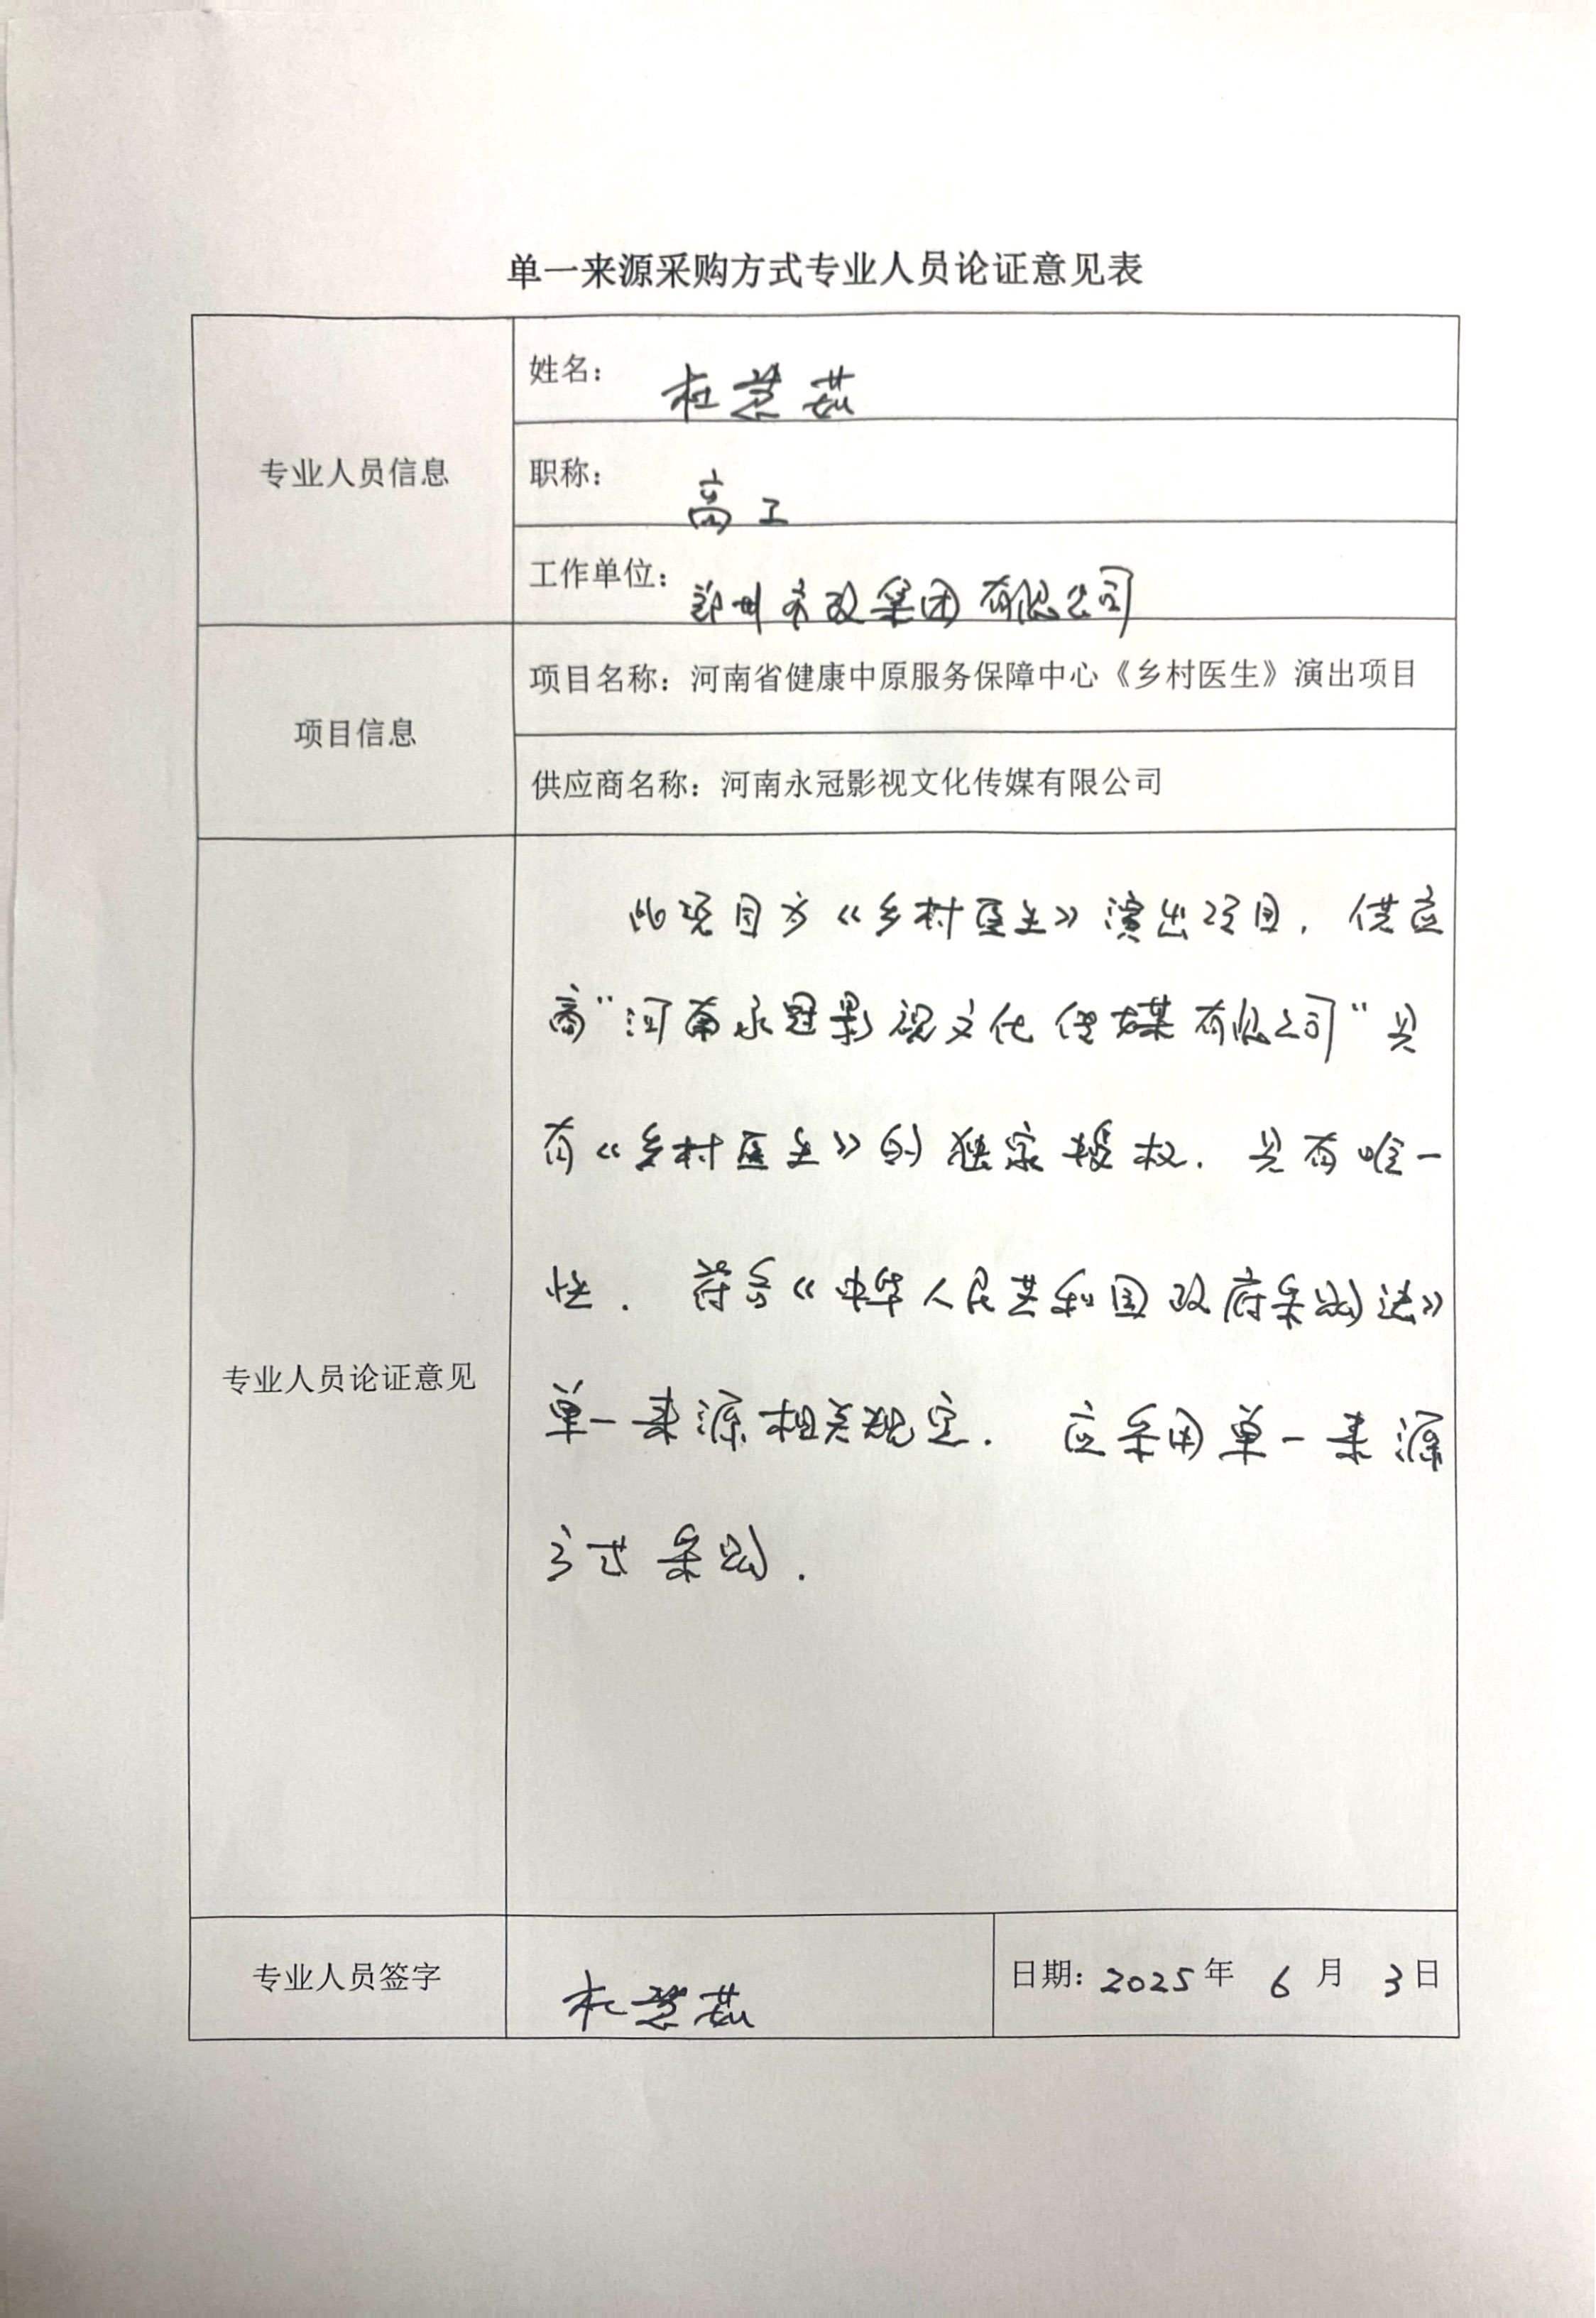 单一来源采购方式专业人员论证意见表
专业人员信息
姓名： 杜慧茹
职称： 高工
工作单位： 郑州市政集团有限公司
项目信息
项目名称：河南省健康中原服务保障中心《乡村医生》演出项目
供应商名称：河南永冠影视文化传媒有限公司
专业人员论证意见
此项目为《乡村医生》演出项目，供应
商“河南永冠影视文化传媒有限公司”具
有《乡村医生》的独家授权，具有唯一
性．符合《中华人民共和国政府采购法》
单一来源相关规定．应采用单一来源
方式采购．
专业人员签字
杜慧茹
日期：2025年 6月 3日